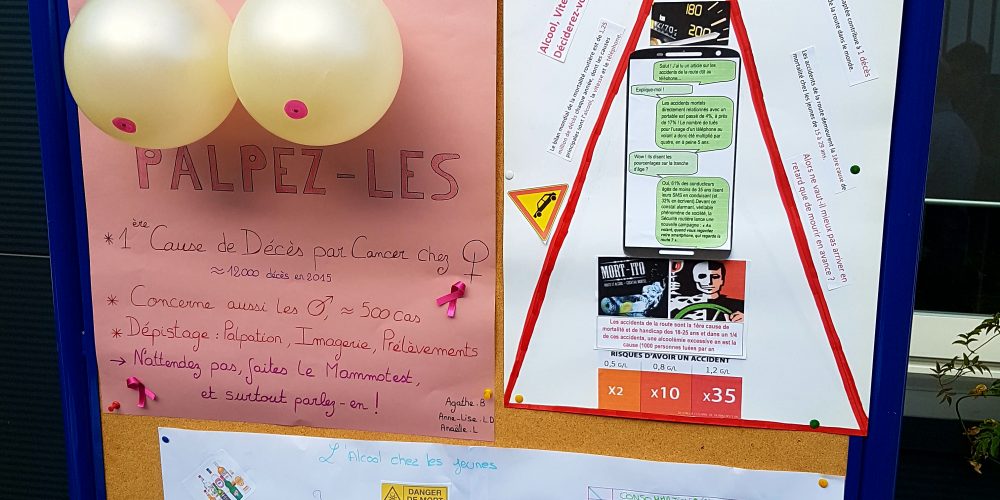 PALPEZ-LES
* 1ère Cause de Décès par Cancer chez ♀
≈ 12000 décès en 2015
* Concerne aussi les ♂, ≈ 500 cas
* Dépistage : Palpation, Imagerie, Prélèvements
→ N'attendez pas, faites le Mammotest,
et surtout parlez-en !
Agathe.B
Anne-Lise.L.D
Anaëlle.L
Alcool, Vite
Déciderez-vo
Le bilan mondial de la mortalité routière est de 1,25
million de décès chaque année, dont les causes
principales sont l'alcool, la vitesse et le téléphone...
180
200
Salut ! J'ai lu un article sur les
accidents de la route dût au
téléphone...
Explique-moi !
Les accidents mortels
directement relationnés avec un
portable est passé de 4%, à près
de 17% ! Le nombre de tués
pour l'usage d'un téléphone au
volant a donc été multiplié par
quatre, en à peine 5 ans.
Wow ! Ils disent les
pourcentages sur la tranche
d'âge ?
Oui, 61% des conducteurs
âgés de moins de 35 ans lisent
leurs SMS en conduisant (et
32% en écrivent). Devant ce
constat alarmant, véritable
phénomène de société, la
Sécurité routière lance une
nouvelle campagne : « Au
volant, quand vous regardez
votre smartphone, qui regarde la
route ? »
MORT-ITO
Les accidents de la route sont la 1ère cause de
mortalité et de handicap des 18-25 ans et dans un 1/4
de ces accidents, une alcoolémie excessive en est la
cause (1000 personnes tuées par en
RISQUES D'AVOIR UN ACCIDENT
0,5 G/L 0,8 G/L 1,2 G/L
x2 x10 x35
aptée contribue à 1 décès
de la route dans le monde.
Les accidents de la route demeurent la 1ère cause de
mortalité chez les jeunes de 15 à 29 ans.
Alors ne vaut-il mieux pas arriver en
retard que de mourir en avance ?
L'Alcool chez les jeunes
DANGER
DE MORT